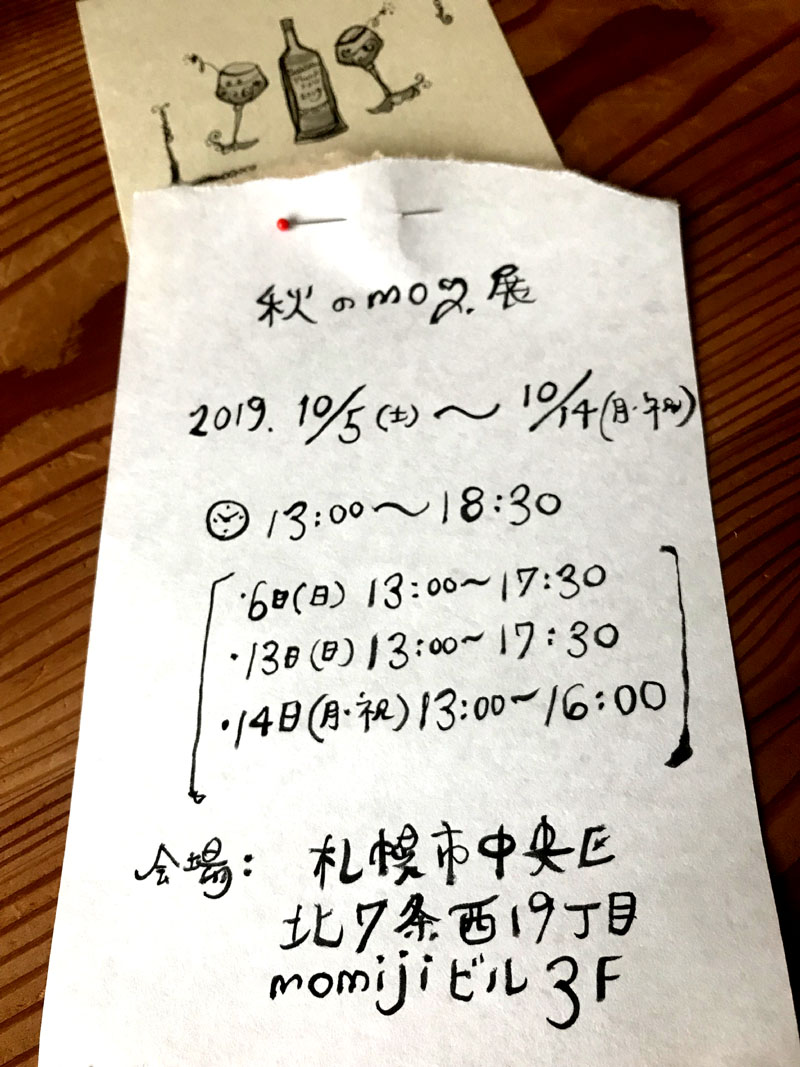 秋のmog.展
2019. 10/5(土)〜10/14(月・祝)
13:00〜18:30
・6日(日) 13:00〜17:30
・13日(日) 13:00〜17:30
・14日(月・祝) 13:00〜16:00
会場: 札幌市中央区
北7条西19丁目
momijiビル3F